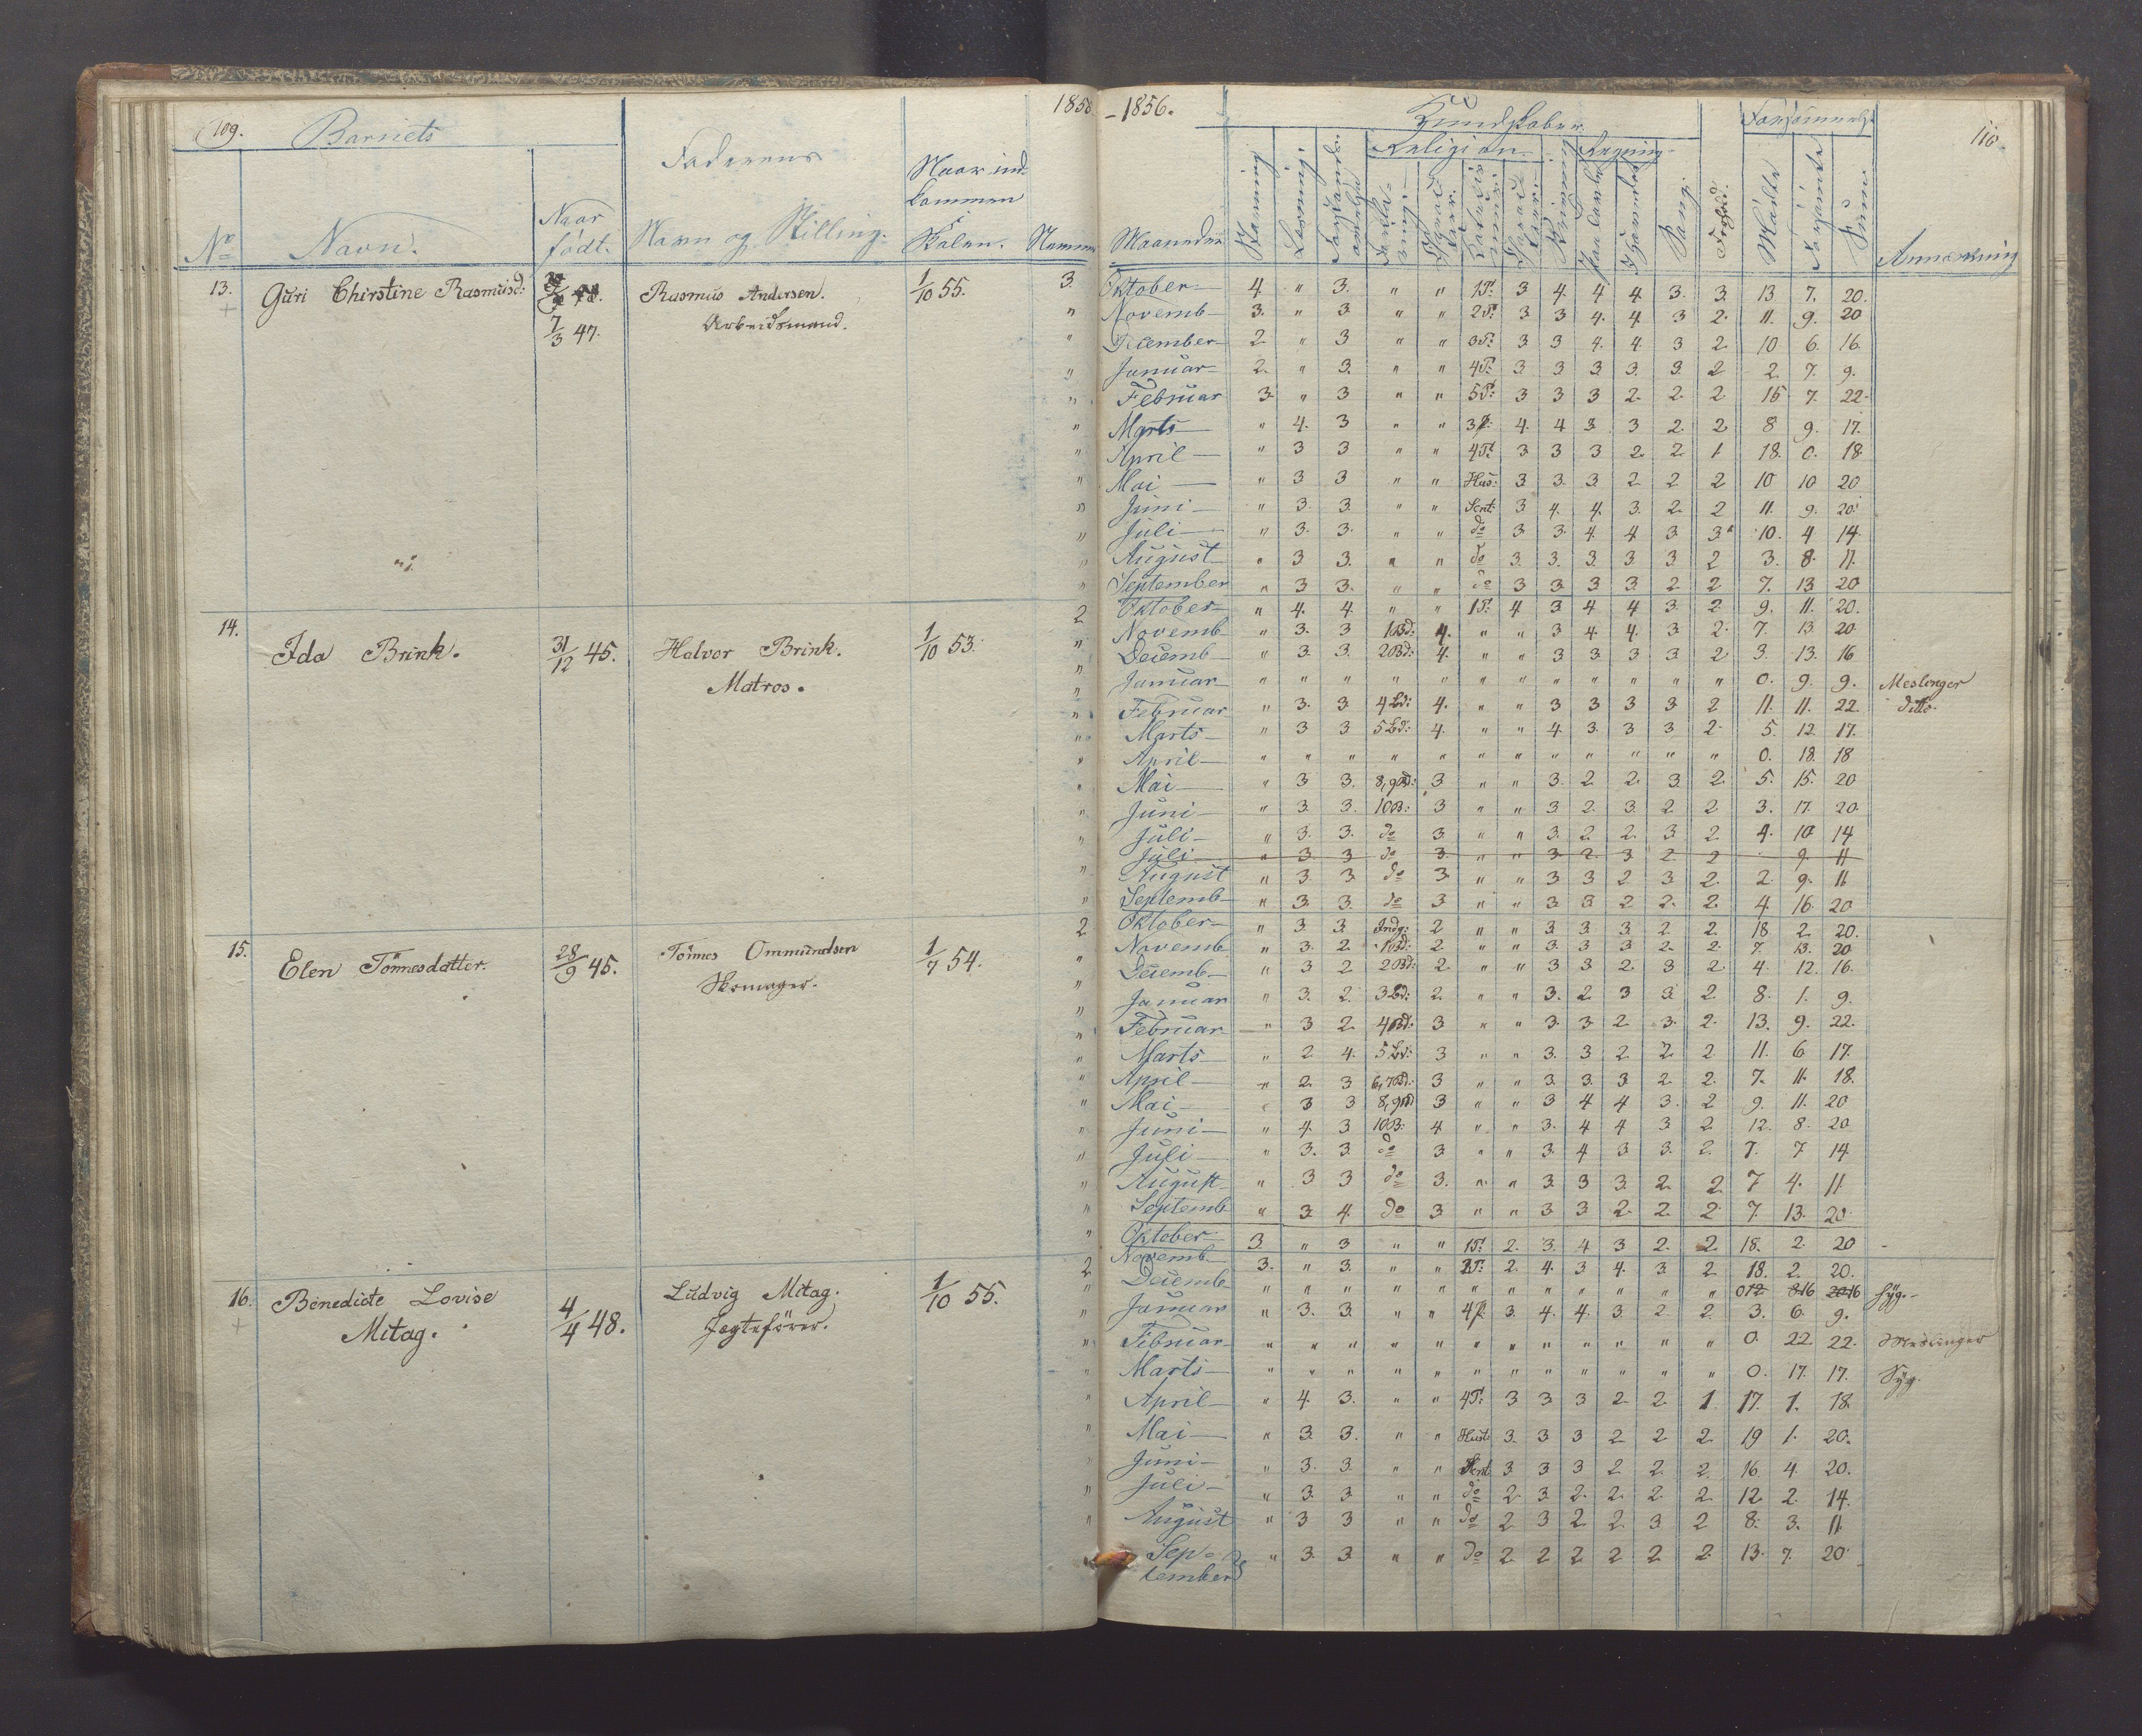 109.
Barnets
1855
-1856.
Kundskaber.
Forsömmelse
110.
Faderens
Naar ind-
kommen
Skolen.
Religion.
Regning
No
Navn.
Naar
födt.
Navn og Stilling.
Nummer
Maaneder
Stavning
Læsning.
Skrivning
Sang.
Forhold.
Mödte
Forsömte
Sum
Anmærkning
13. Guri Chirstine Rasmusd: Rasmus Andersen. 1/10 55. 3. Oktober 4 " 3. " " 1P: 3 4. 4 4 3. 3. 13. 7. 20.
7/3 47. Arbeidsmand. " Novemb 3. " 3 " " 2P: 3 3 4. 4 3 2. 11. 9. 20
" December 2 " 3 " " 3P: 3. 3 4. 4. 3 2. 10 6. 16.
" Januar 2. " 3. " " 4P: 3 3 3 3. 3. 2 2. 7. 9.
" Februar 3. " 3 " " 5P: 3 3 3 2. 2. 2 15 7. 22.
" Marts " 4. 3 " " 3P: 4. 4 3. 3 2. 2 8 9. 17.
" April " 3 3 " " 4P: 3 3 3 2. 2. 1 18. 0. 18
" Mai " 3 3 " " Hus: 3 3. 3 2 2 2 10 10 20
" Juni " 3. 3. " " Sent: 3 4. 4. 3. 2. 2 11. 9. 20.
" Juli " 3. 3. " " do 3 3. 4. 4 3 3 10. 4 14.
" August " 3 3. " " do 3. 3. 3. 3. 3. 2 3. 8. 11.
" September " 3 3. " " do 3 3. 3 3 2 2 7. 13 20
14. 2 Oktober " 4. 4. " " 1P. 4 3 4 4 3. 2 9. 11. 20.
Ida Brink. 31/12 45. Halvor Brink. 1/10 53. " Novemb " 3. 3 1Bd: 4. " " 3 4. 4. 3 2. 7. 13 20
Matros. " Decemb " 3. 3. 2Bd: 4. " " 3 3 3 3. 2 3. 13. 16
" Januar " " " " " " " " " " " " 0. 9. 9. Meslinger
" Februar " 3. 3 4Bd: 4. " " 3 3 3 3. 2 11. 11. 22. ditto.
" Marts " 3 3 5Bd: 4. " " 4. 3. 3 3 2. 5. 12. 17.
" April " " " " " " " " " " " " 0. 18. 18
" Mai " 3 3. 8,9Bd: 3 " " 3. 2 2. 3 2. 5. 15. 20
" Juni " 3. 3. 10B: 3 " " 3 2. 3. 2 2 3. 17. 20.
" Juli " 3. 3. do 3 " " 3. 2 2. 3 2 4. 10 14
Juli " 3. 3 do 3. " " 3. 2 3 2. 2 9. 11
" August " 3. 3. do 3. " " 3 3 2 3. 2. 2. 9. 11
" Septemb " 3. 3. do 3 " " 3 3 2 2. 2. 4 16. 20
15. 2 Oktober " 3 3. Indg: 2 " " 3 3. 3. 2 2. 18 2. 20.
Elen Tönnesdatter. 28/9 45. Tönnes Ommundsen 1/7 54. " Novemb " 3. 2. 1Bd: 2 " " 3. 3 3 2. 2. 7. 13. 20
Skomager. " Decemb " 3 2 2Bd: 2. " " 3 3 2. 3 2 4. 12. 16.
" Januar " 3. 2. 3Bd: 2. " " 3. 2. 3 3. 2 8. 1. 9.
" Februar " 3 2. 4Bd: 3 " " 3. 3. 2 3. 2. 13. 9. 22.
" Marts " 2 4. 5Bd: 3 " " 3. 3 2 2. 2 11. 6 17.
" April " 2. 3 6,7Bd: 3 " " 3. 3. 3. 2 2. 7. 11. 18.
" Mai " 3 3 8,9Bd 3 " " 3 4 4 3. 2 9. 11. 20
" Juni " 4. 3 10B: 4 " " 3. 4 4 3 2 12. 8. 20
" Juli " 3. 3. do 3 " " 3. 4 3 3. 2. 7. 7 14
" August " 3 3 do 3. " " 3. 3 3. 2 2. 7 4. 11
" Septemb " 3. 4. do 3 " " 3 3 2. 2. 2. 7. 13. 20.
Oktober 3. " 3 " " 1P: 2. 3. 4 3 2. 2 18. 2. 20
2 Novemb 3. " 3 " " P: 2. 4. 3 4. 3. 2 18. 2. 20.
16. Benedicte Lovise 4/4 48. Ludvig Mitag. 1/10 55. " Decemb " " " " " " " " " " " " 0 12 8 16 20 16 Syg.
Mitag. Jagtefører. " Januar " 3. 3. " " 4P. 3. 4. 4. 3. 2 2. 3. 6. 9.
" Februar " " " " " " " " " " " " 0. 22. 22. Meslinger
" Marts " " " " " " " " " " " " 0. 17. 17. Syg.
" April " 4. 3. " " 4P: 3 3 3 2 2. 1 17. 1. 18.
" Mai " 3. 3. " " Hust: 3. 3 3 2 2 2. 19 1. 20.
" Juni " 3. 3. " " Sent. 3 3 3 2 2. 2. 16. 4. 20.
" Juli " 3. 3 " " do 2. 3. 2. 2. 2. 2 12. 2. 14.
" August " 3 3 " " do 2 3 2 2. 3 2 8. 3. 11.
Sep- " 3. 3. " " do 2 2 2 2 2 2. 13. 7. 20.
tember